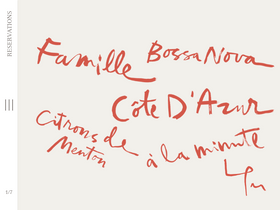 RESERVATIONS
Famille Bossa Nova
Côte D'Azur
Citrons de Menton
à la minute
1/7